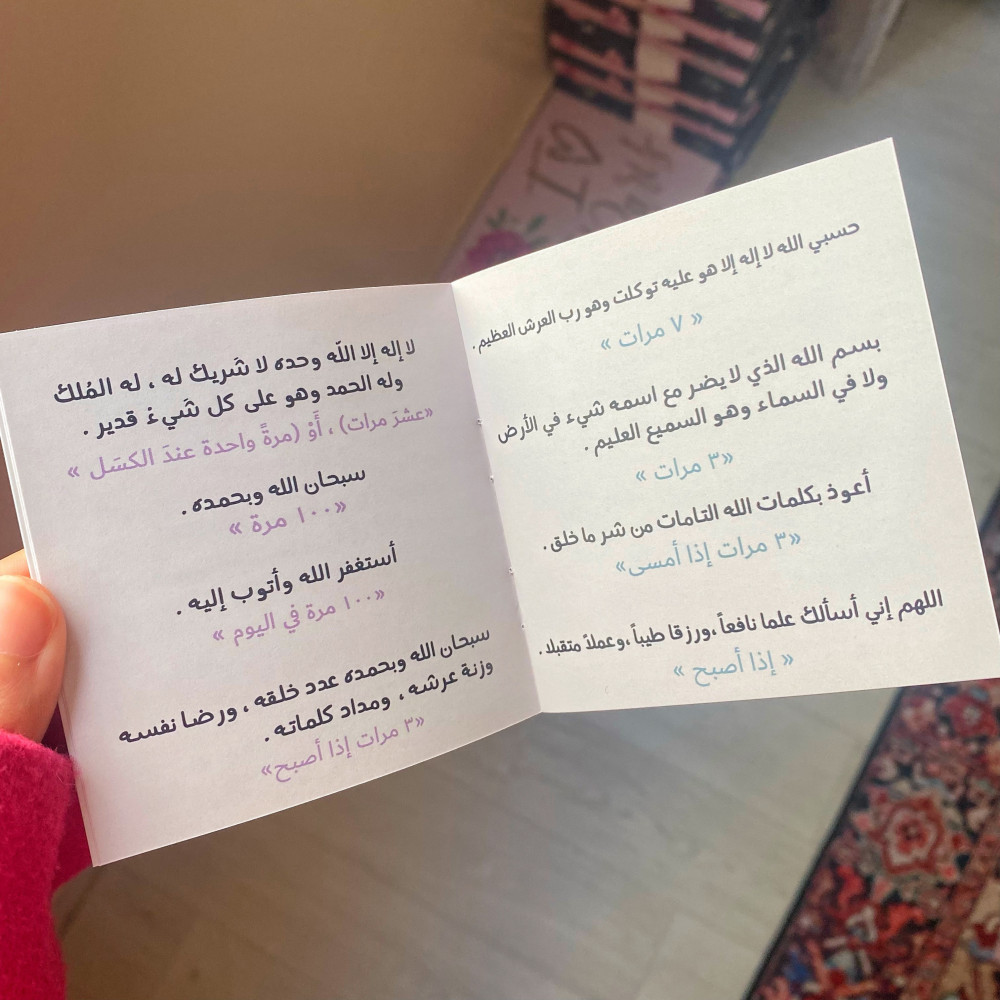 حسبي الله لا إله إلا هو عليه توكلت وهو رب العرش العظيم .
« ٧ مرات »
بسم الله الذي لا يضر مع اسمه شيء في الأرض
ولا في السماء وهو السميع العليم .
«٣ مرات »
أعوذ بكلمات الله التامات من شر ما خلق .
«٣ مرات إذا أمسى»
اللهم إني أسألك علما نافعاً ،ورزقا طيباً ،وعملاً متقبلا .
« إذا أصبح »
لا إله إلا اللّه وحده لا شَريك له ، له المُلك
وله الحمد وهو على كل شَيءٌ قدير .
«عشرَ مرات) ، أَوْ (مرةً واحدة عندَ الكسَل »
سبحان الله وبحمده .
«١٠٠ مرة »
أستغفر الله وأتوب إليه .
«١٠٠ مرة في اليوم »
سبحان الله وبحمده عدد خلقه ، ورضا نفسه
وزنة عرشه ، ومداد كلماته .
«٣ مرات إذا أصبح»
I